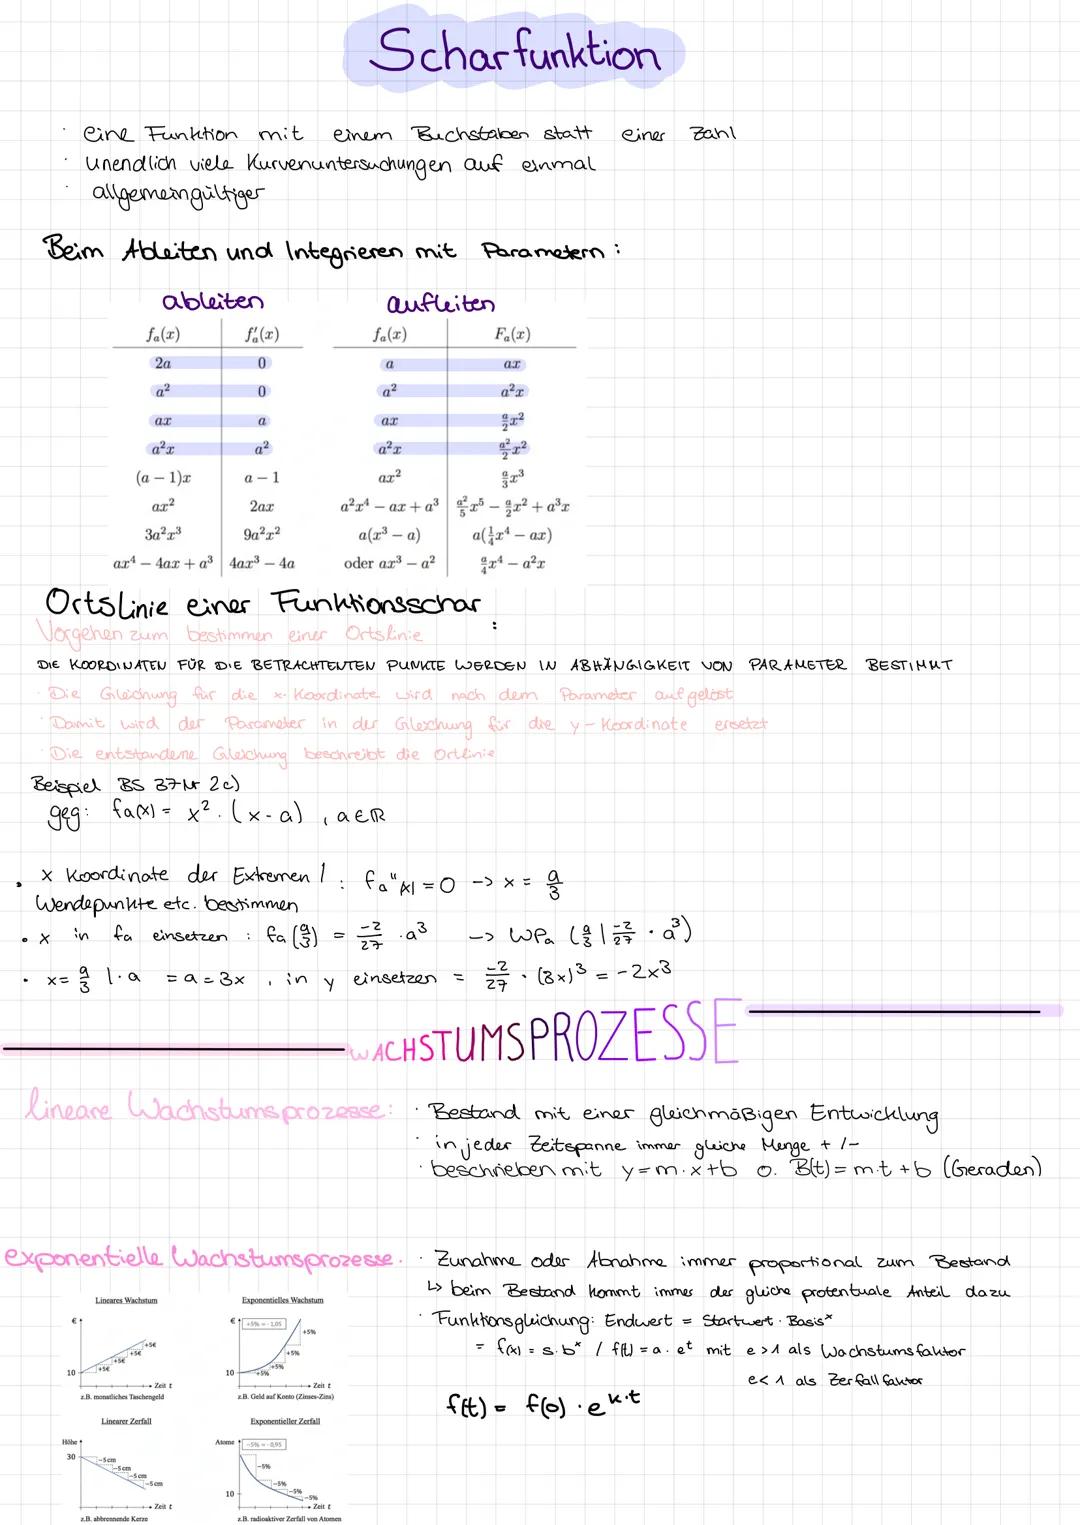 Scharfunktion
· eine Funktion mit einem Buchstaben statt einer Zahl
· unendlich viele Kurvenuntersuchungen auf einmal
· allgemeingültiger
Beim Ableiten und Integrieren mit Parametern:
ableiten aufleiten
fₐ(x) fₐ'(x) fₐ(x) Fₐ(x)
2a 0 a ax
a² 0 a² a²x
ax a ax a/2 x²
a²x a² a²x a²/2 x²
(a − 1)x a − 1 ax² a/3 x³
ax² 2ax a²x⁴ − ax + a³ a²/5 x⁵ − a/2 x² + a³x
3a²x³ 9a²x² a(x³ − a) a(1/4 x⁴ − ax)
ax⁴ − 4ax + a³ 4ax³ − 4a oder ax³ − a² a/4 x⁴ − a²x
Ortslinie einer Funktionsschar:
Vorgehen zum bestimmen einer Ortslinie
DIE KOORDINATEN FÜR DIE BETRACHTENTEN PUNKTE WERDEN IN ABHÄNGIGKEIT VON PARAMETER BESTIMMT
· Die Gleichung für die x-Koordinate wird nach dem Parameter aufgelöst
· Damit wird der Parameter in der Gleichung für die y-Koordinate ersetzt
· Die entstandene Gleichung beschreibt die Ortlinie
Beispiel BS 37 Nr 2c)
geg: fa(x) = x² · (x-a), a∈ℝ
• x Koordinate der Extremen / : fa"(x) = 0 -> x = a/3
Wendepunkte etc. bestimmen
• x in fa einsetzen : fa(a/3) = -2/27 · a³ -> WPa (a/3 | -2/27 · a³)
• x = a/3 |·a = a = 3x, in y einsetzen = -2/27 · (3x)³ = -2x³
WACHSTUMSPROZESSE
lineare Wachstumsprozesse: · Bestand mit einer gleichmäßigen Entwicklung
· in jeder Zeitspanne immer gleiche Menge + / -
· beschrieben mit y = m·x+b o. B(t) = m·t + b (Geraden)
exponentielle Wachstumsprozesse. · Zunahme oder Abnahme immer proportional zum Bestand
↳ beim Bestand kommt immer der gleiche protentuale Anteil dazu
· Funktionsgleichung: Endwert = Startwert · Basisˣ
= f(x) = s·bˣ / f(t) = a·eᵗ mit e>1 als Wachstumsfaktor
e<1 als Zerfallfaktor
f(t) = f(0) · e^k·t
Lineares Wachstum
€
+5€
+5€
+5€
+5€
10
Zeit t
z.B. monatliches Taschengeld
Exponentielles Wachstum
€
+5% = · 1,05
+5%
+5%
+5%
+5%
10
Zeit t
z.B. Geld auf Konto (Zinses-Zins)
Linearer Zerfall
Höhe
30
−5 cm
−5 cm
−5 cm
−5 cm
Zeit t
z.B. abbrennende Kerze
Exponentieller Zerfall
Atome
−5% = · 0,95
−5%
−5%
−5%
−5%
10
Zeit t
z.B. radioaktiver Zerfall von Atomen